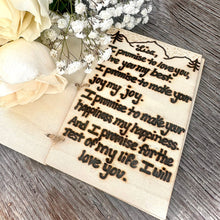 I promise to love you,
be your my best.
I promise to make your
joy my joy.
I promise to make your
happiness my happiness.
And I promise for the
rest of my life I will
love you.